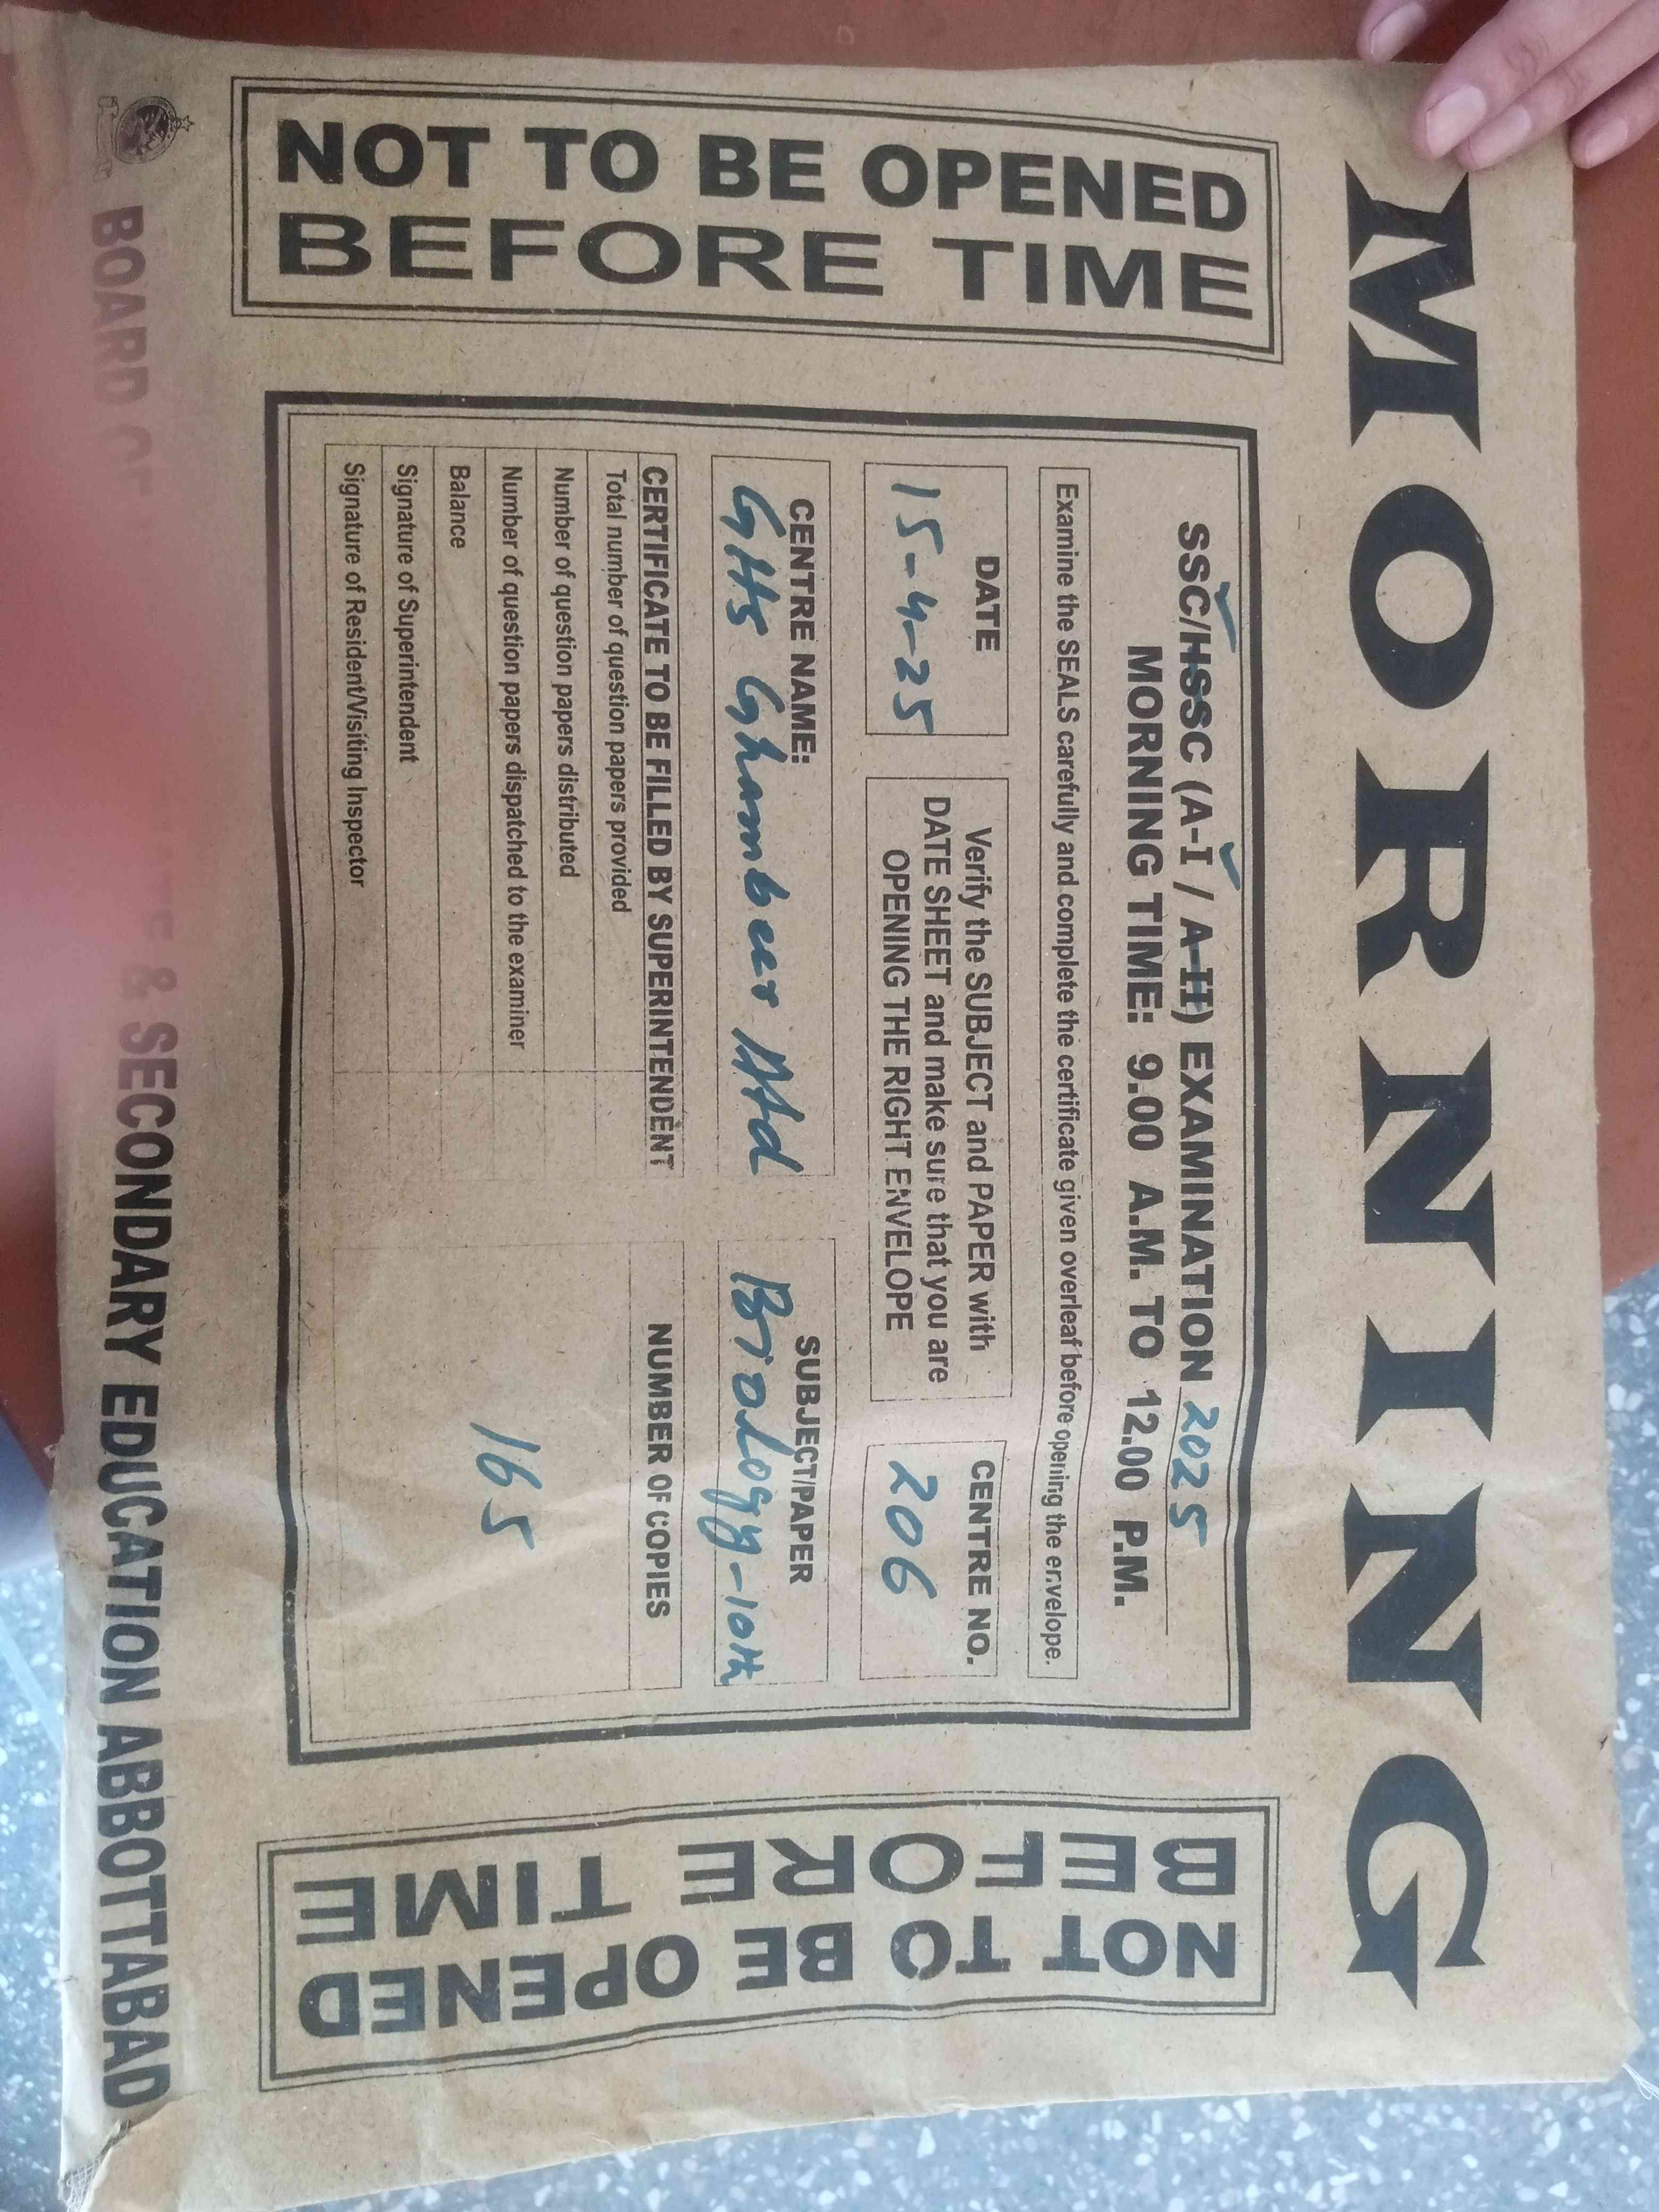 MORNING
NOT TO BE OPENED
BEFORE TIME
SSC/HSSC (A-I / A-II) EXAMINATION 2025
MORNING TIME: 9.00 A.M. TO 12.00 P.M.
Examine the SEALS carefully and complete the certificate given overleaf before opening the envelope.
DATE
15-4-25
Verify the SUBJECT and PAPER with
DATE SHEET and make sure that you are
OPENING THE RIGHT ENVELOPE
CENTRE NO.
206
CENTRE NAME:
GHS Ghambeer Atd
SUBJECT/PAPER
Biology-10th
CERTIFICATE TO BE FILLED BY SUPERINTENDENT
Total number of question papers provided
Number of question papers distributed
Number of question papers dispatched to the examiner
Balance
Signature of Superintendent
Signature of Resident/Visiting Inspector
NUMBER OF COPIES
165
NOT TO BE OPENED
BEFORE TIME
BOARD OF & SECONDARY EDUCATION ABBOTTABAD